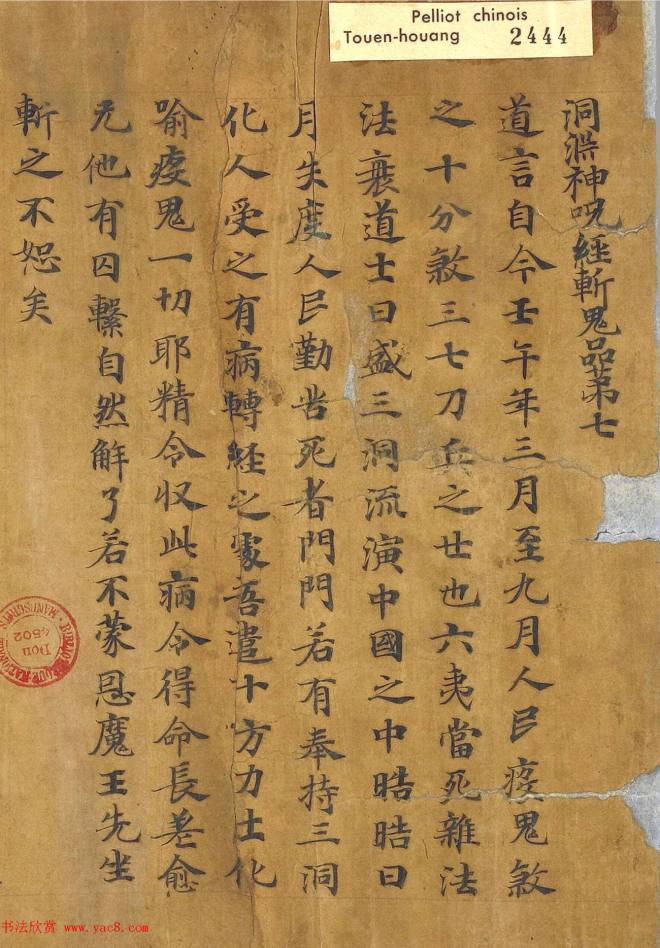 Pelliot chinois
Touen-houang 2444
洞淵神呪經斬鬼品第七
道言自今壬午年三月至九月人民疫鬼煞
之十分煞三七刀兵之世也六夷當死雜法
法衰道士日盛三洞流演中國之中晧晧日
月失度人民勤苦死者門門若有奉持三洞
化人受之有病轉経之處吾遣十方力士化
喻疫鬼一切耶精令収此病令得命長差愈
无他有囚繫自然解了若不蒙恩魔王先坐
斬之不恕矣
MANUSCRITS
Don
4502
书法欣赏 www.yac8.com